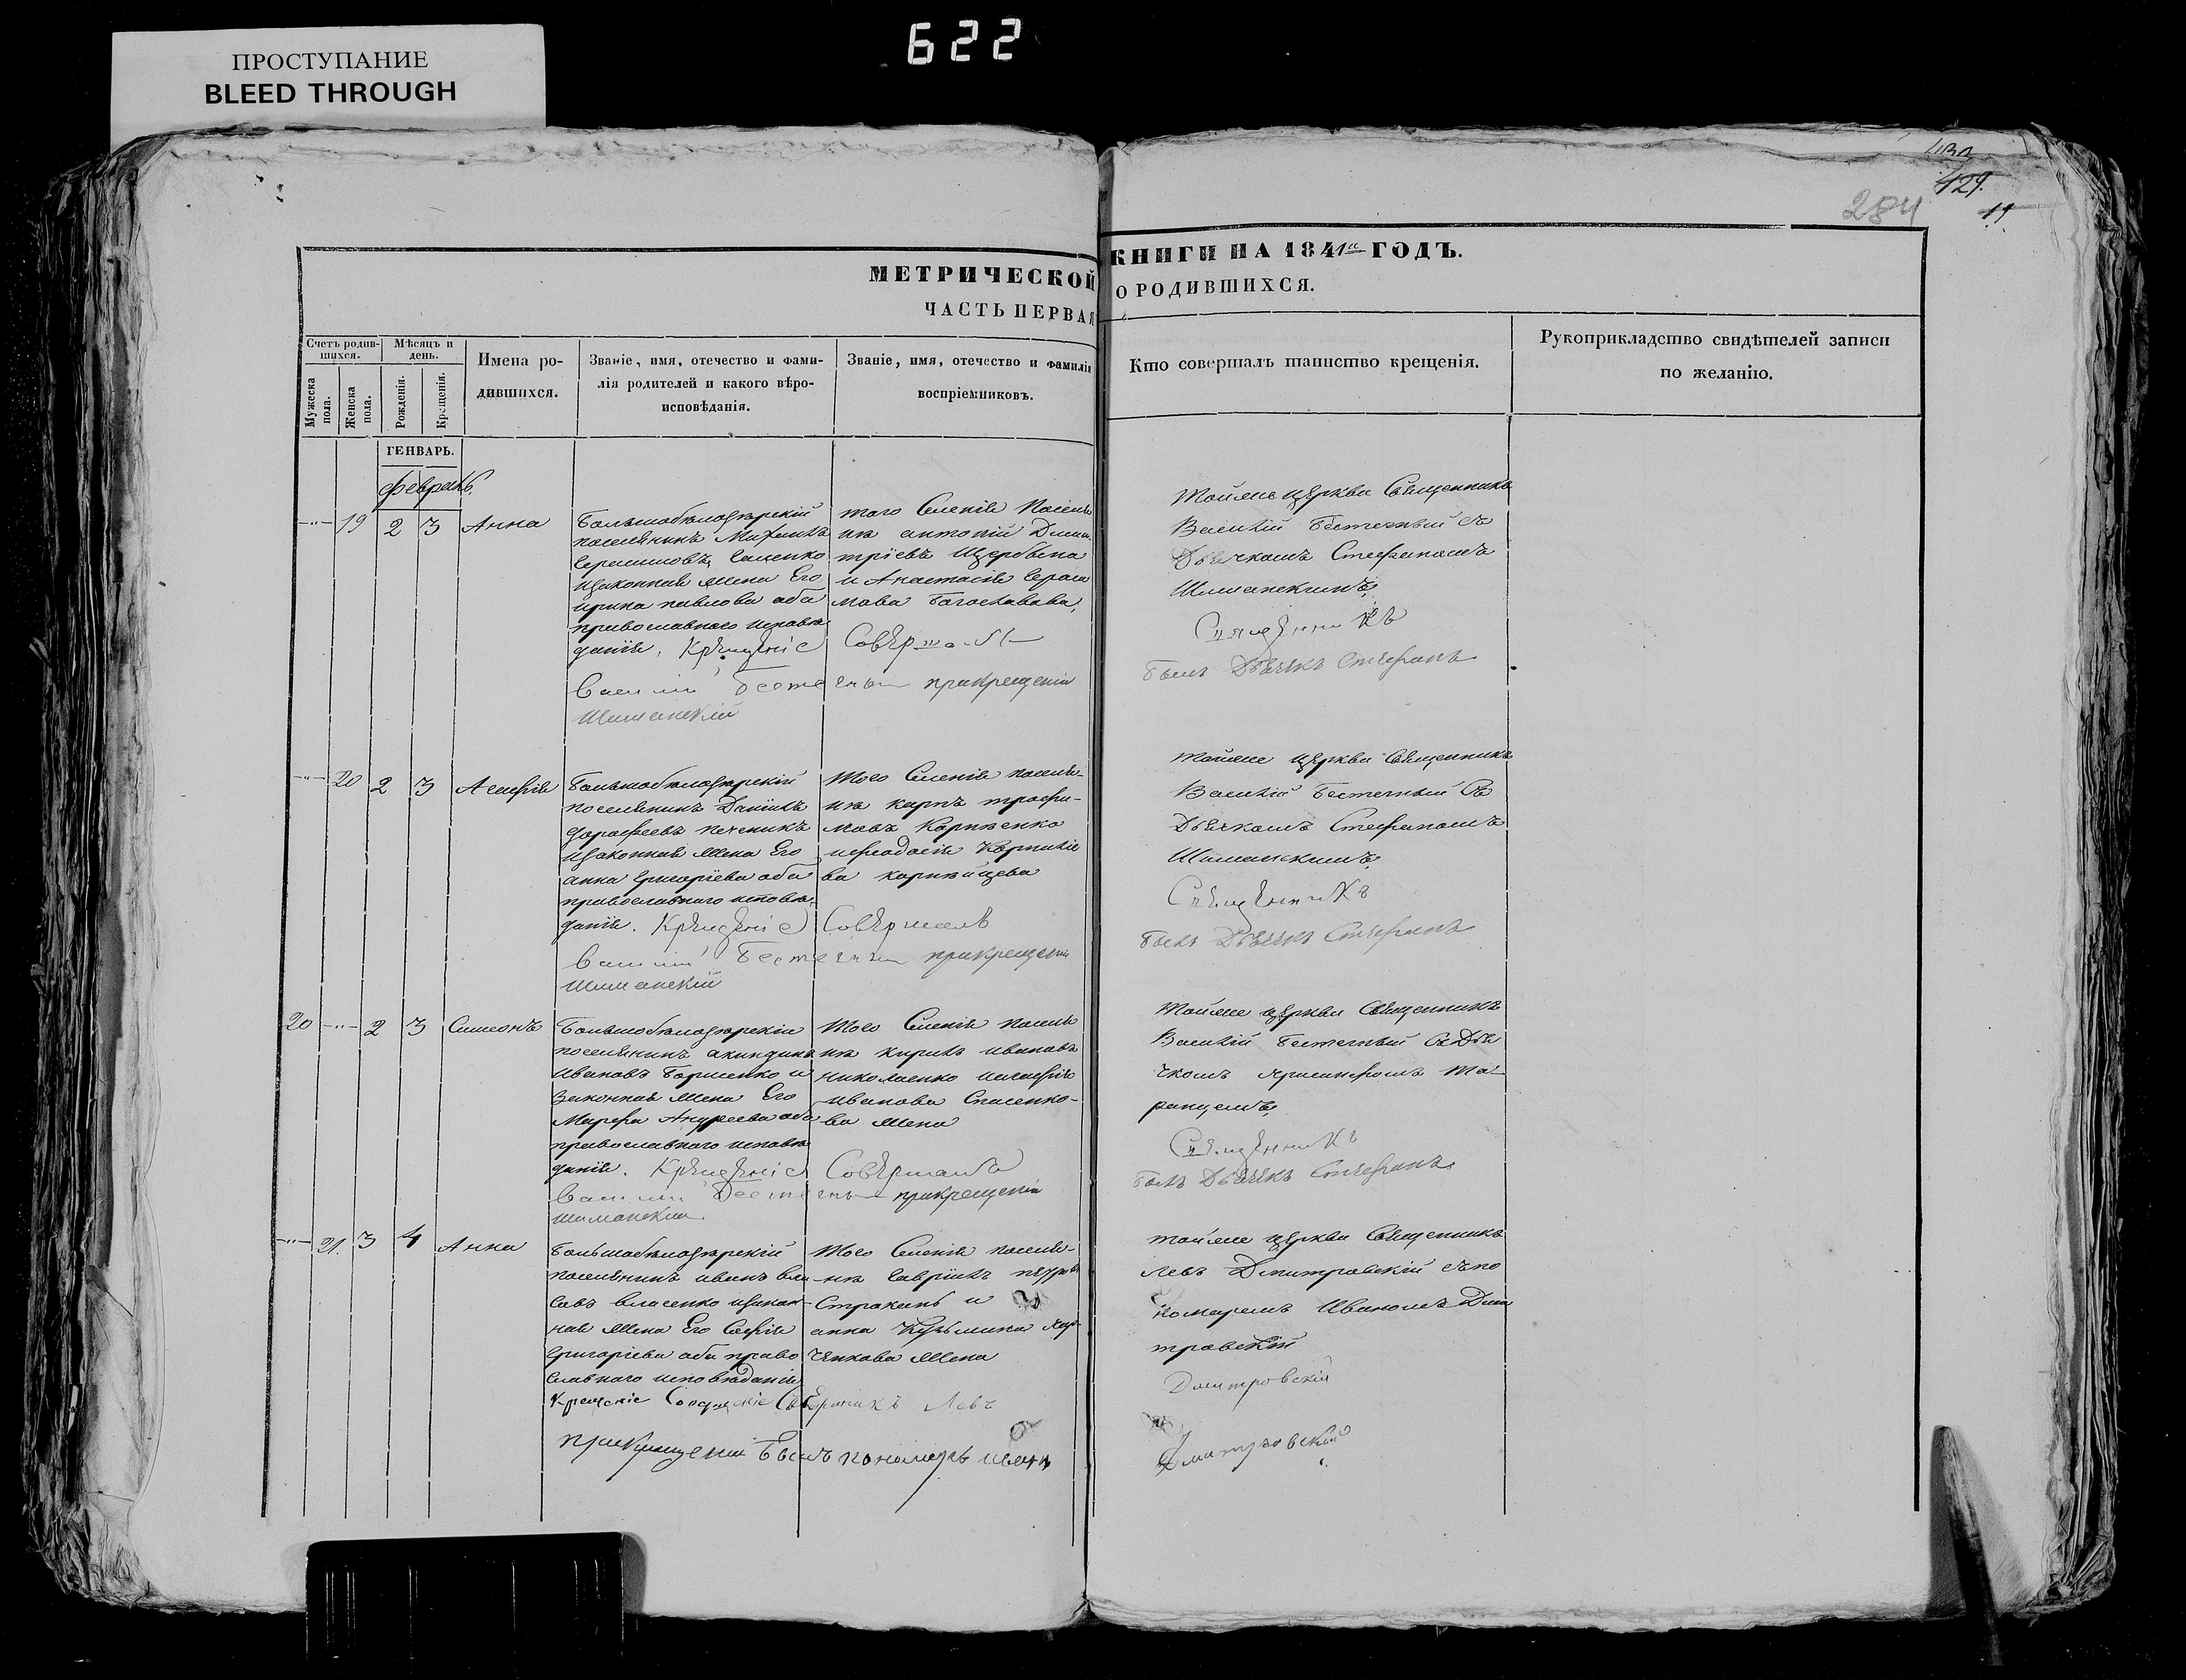 622
ПРОСТУПАНИЕ
BLEED THROUGH
129.
284
19
МЕТРИЧЕСКОЙ КНИГИ НА 1841й ГОДЪ.
ЧАСТЬ ПЕРВАЯ О РОДИВШИХСЯ.
Счетъ родив-
шихся.
Мужеска пола.
Женска пола.
Мѣсяцъ и
день.
Рожденія.
Крещенія.
Имена ро-
дившихся.
Званіе, имя, отечество и фами-
лія родителей и какого вѣро-
исповѣданія.
Званіе, имя, отечество и фамилія
воспріемниковъ.
Кто совершалъ таинство крещенія.
Рукоприкладство свидѣтелей записи
по желанію.
ГЕНВАРЬ.
февраль.
-"- 19 2 3 Анна
Большобѣлозѣрскій
поселянинъ Михаилъ
Герасимовъ
изаконная жена Его
ирина павлова оба
православнаго исповѣ
данія. Крещеніе Совершалъ
того Селенія Поселя
нъ антоній Дими
тріевъ Щербына
и Анастасія Гераси
мова
Василій Бестечный прикрещеніи
Шиманскій
тойже церкви Священникъ
Василій Бестечный съ
Дьячкомъ Стефаномъ
Шиманскимъ
Священникъ
былъ Дьячкъ Стефанъ
-"- 20 2 3 Агафія
Большобѣлозѣрскій
поселянинъ Даніилъ
дорофеевъ печеникъ
изаконная жена Его
анна григоріева оба
православнаго исповѣ
данія. Крещеніе Совершалъ
Того Селенія поселя-
нъ карпъ трофи-
мовъ Корниенко
ифеодосія Корниліе
ва
Василій Бестечный прикрещеніи
Шиманскій
Тойже церкви Священникъ
Василій Бестечный Съ
Дьячкомъ Стефаномъ
Шиманскимъ
Священникъ
былъ Дьячкъ Стефанъ
20 -"- 2 3 Симеонъ
Большобѣлозѣрскій
поселянинъ акиндинъ
Ивановъ Борисенко и
Законная жена Его
Марфа Андреева оба
православнаго исповѣ
данія. Крещеніе Совершалъ
Того Селенія поселя
нъ кирилъ ивановъ
николаенко иагафія
иванова Спасенко-
ва жена
Василій Бестечный прикрещеніи
Шиманскій
Тойже церкви Священникъ
Василій Бестечный Съ Дья
чкомъ
Священникъ
былъ Дьячкъ Стефанъ
-"- 21. 3 4 Анна
Большобѣлозѣрскій
поселянинъ иванъ вла
совъ власенко изакон-
ная жена Его Софія
Григоріева оба право
славнаго исповѣданія
Того Селенія поселя-
нъ Гавріилъ петровъ
Стракань и
анна Кузьмина
жена
Крещеніе Левъ
прикрещеніи былъ пономарь иванъ
тойже церкви Священникъ
Левъ Димитровскій съ по
номаремъ Иваномъ Дми
тровскій
Дмитровскій
Дмитровскій